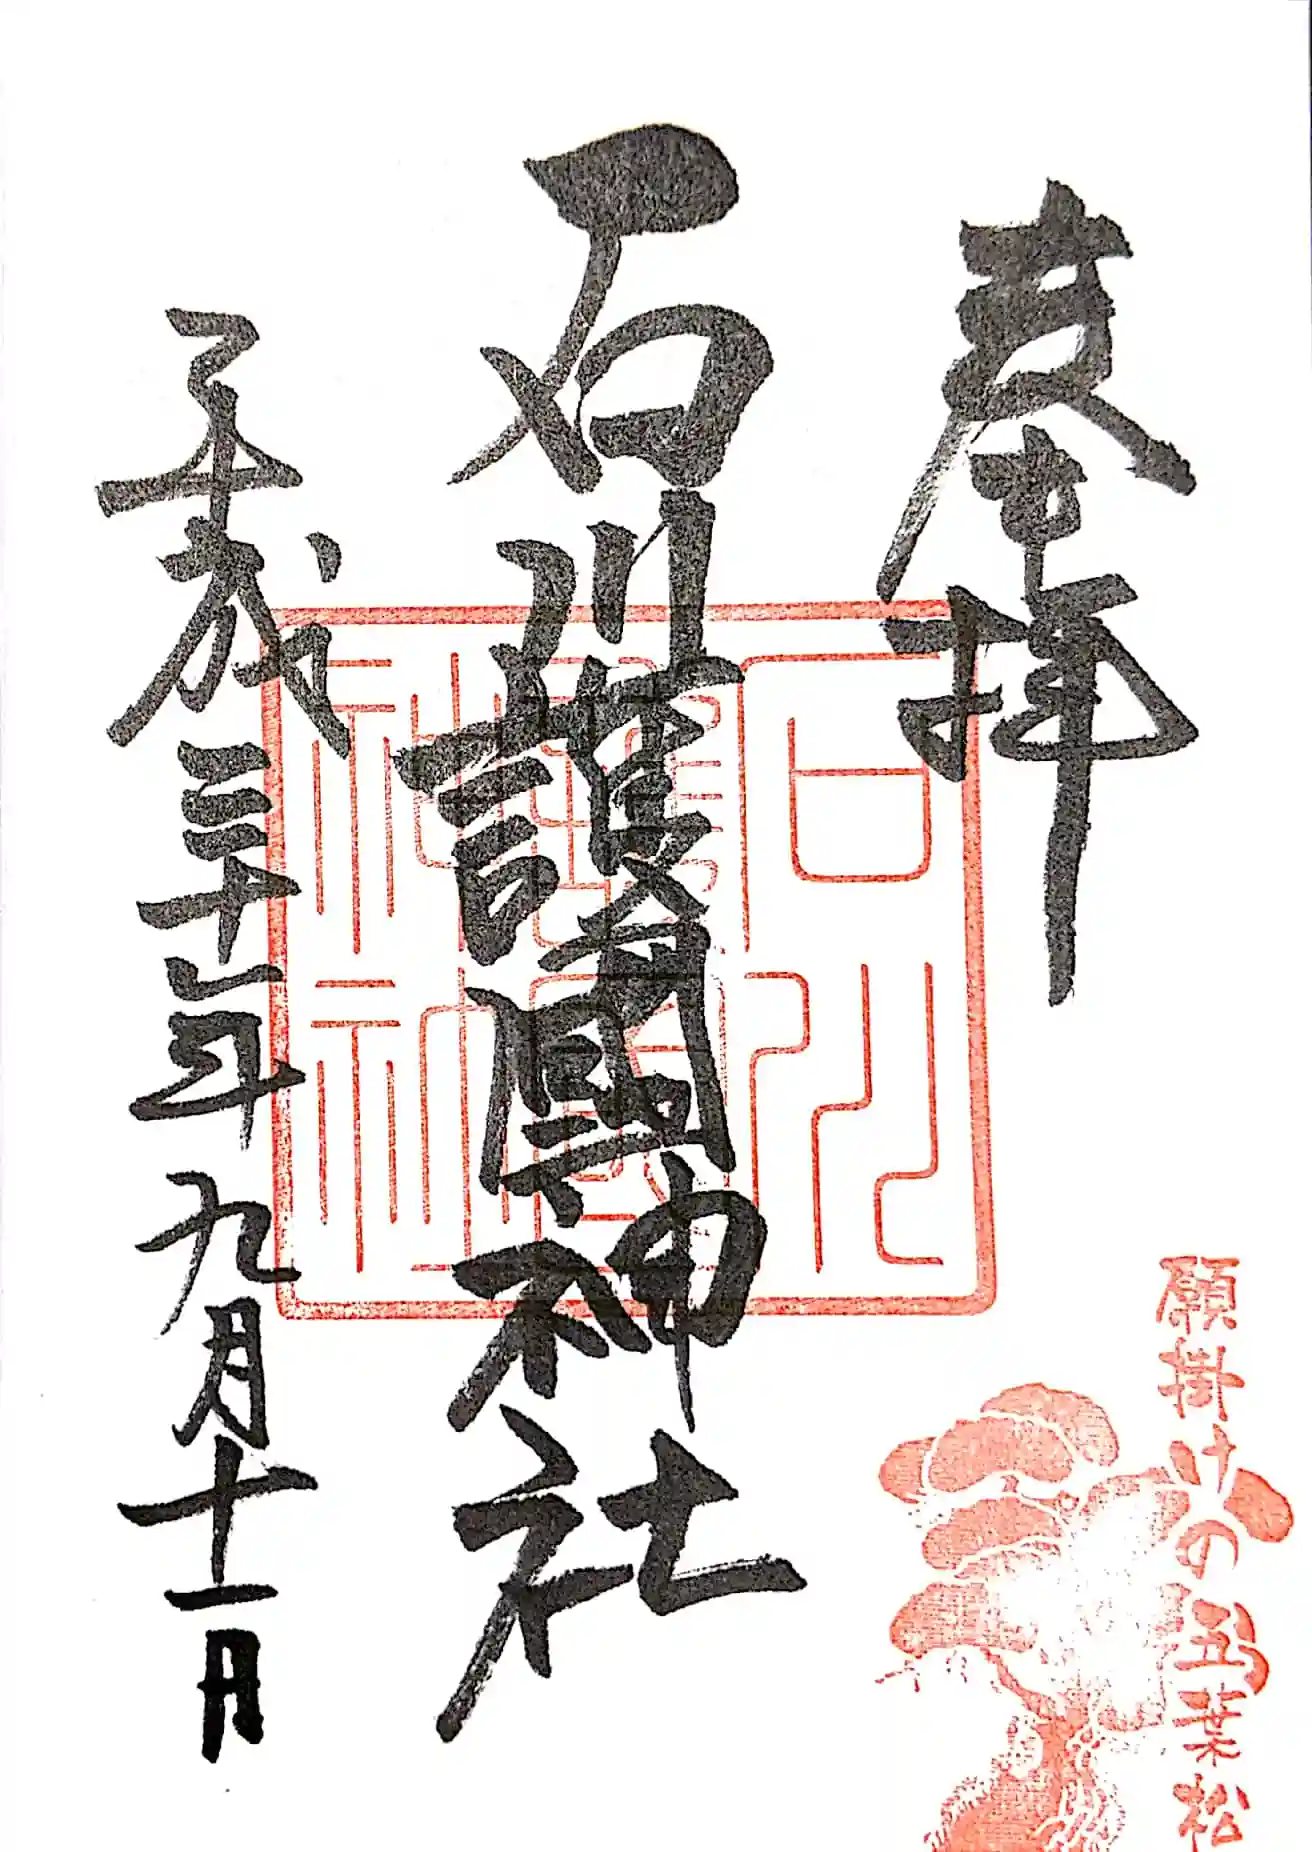 奉拝
石川護國神社
平成三十年九月十一日
願掛けの五葉松